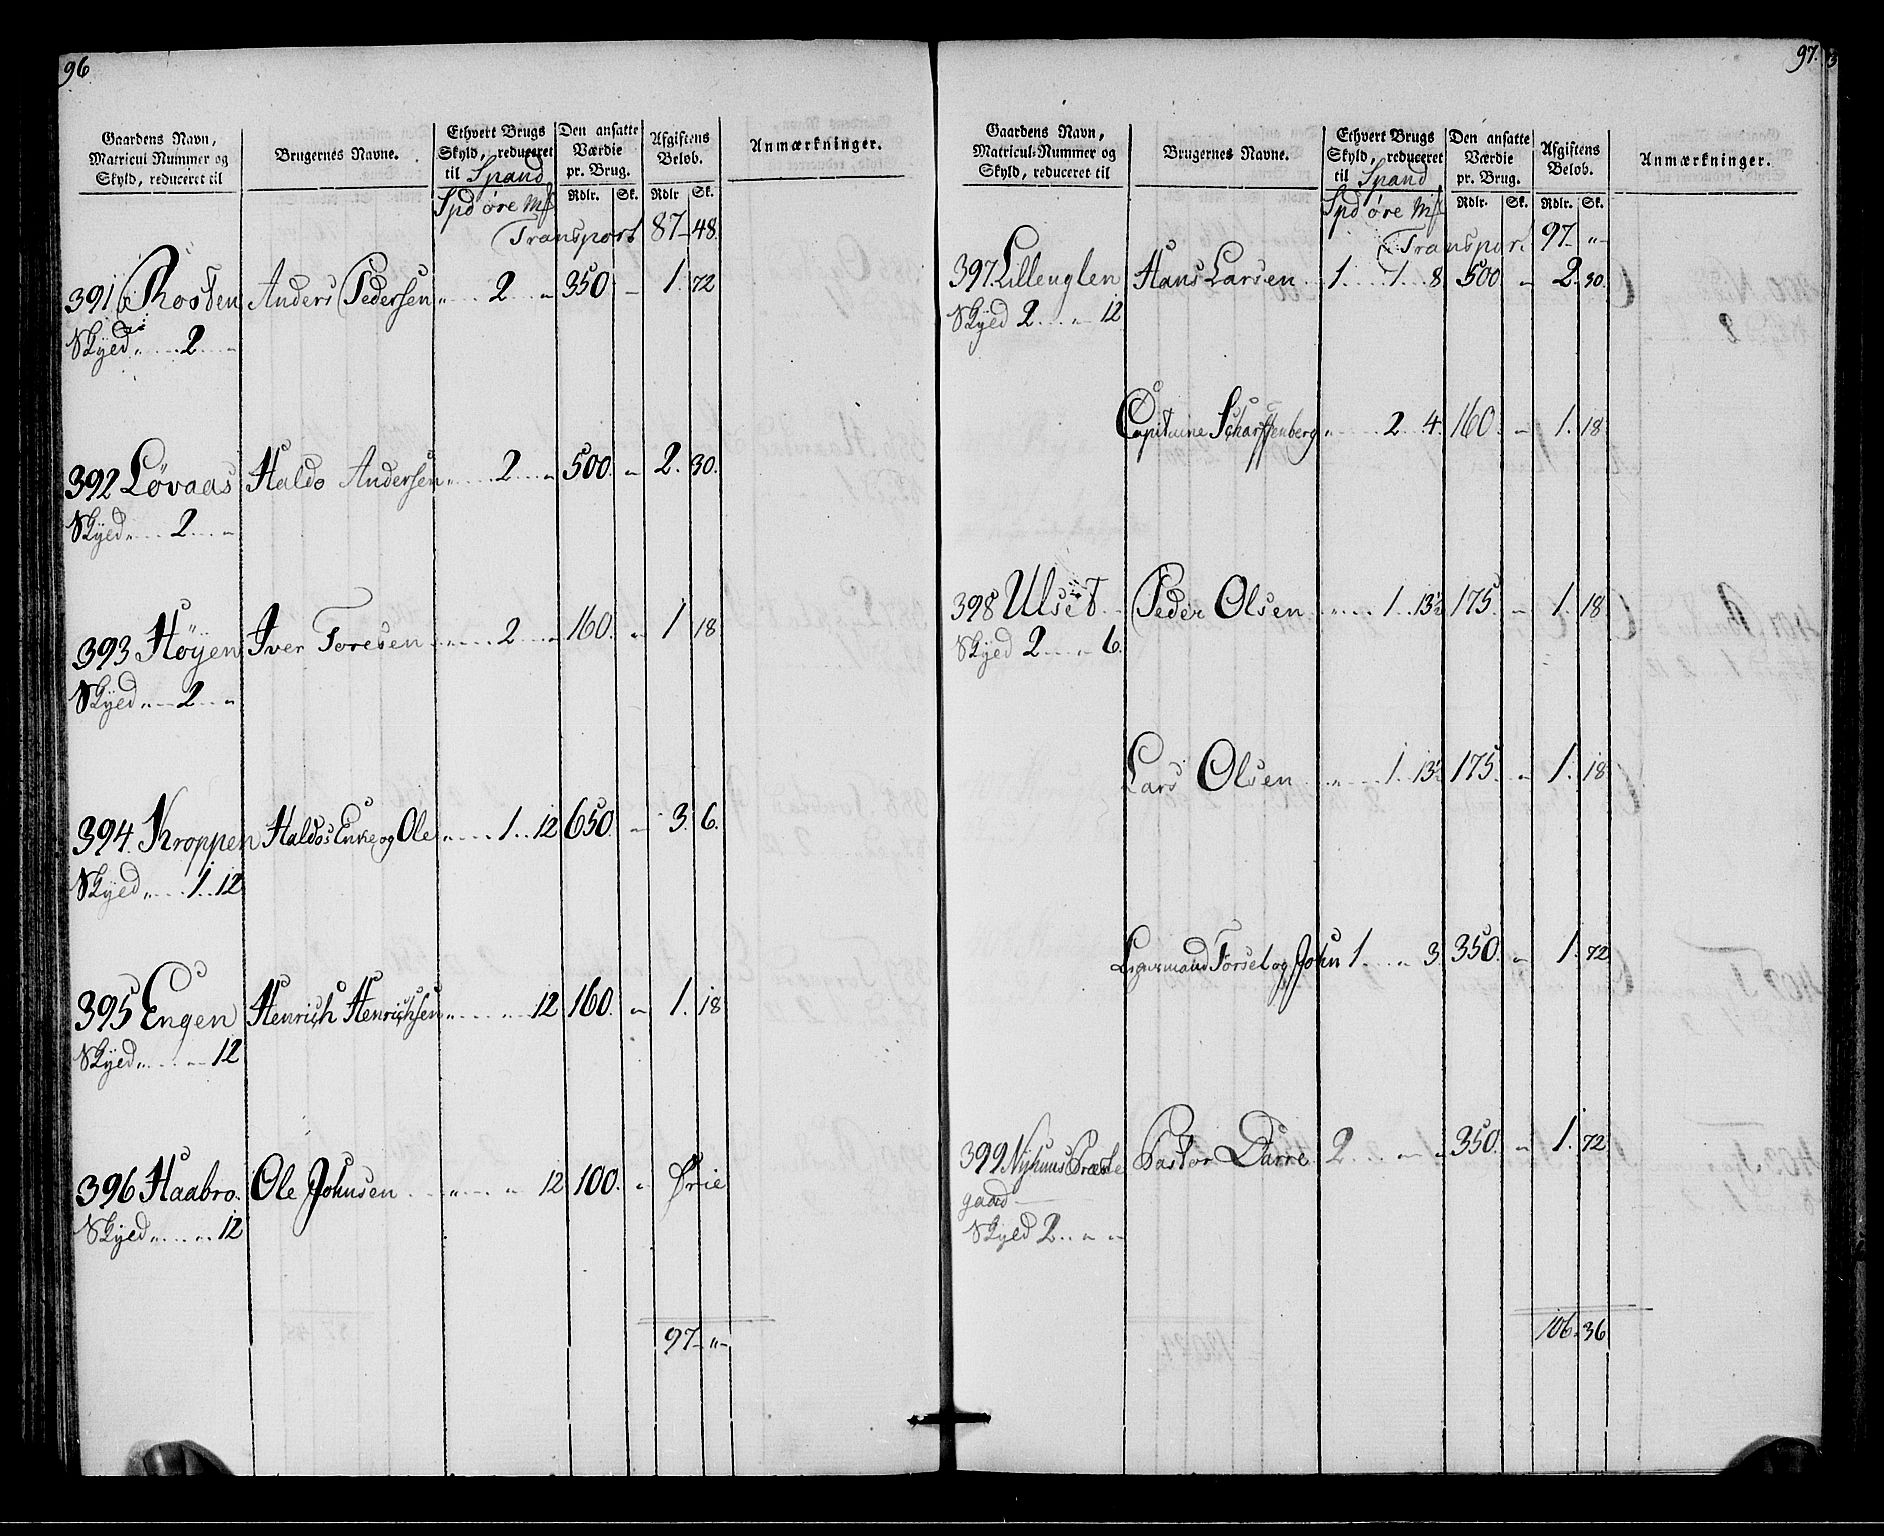 96
Gaardens Navn, Matricul Nummer og Skyld, reduceret til
Brugernes Navne.
Ethvert Brugs Skyld, reduceret til Spand
Den ansatte Værdie pr. Brug.
Afgiftens Beløb.
Anmærkninger.
Spd øre Mk Rdlr. Sk. Rdlr Sk.
Transport 87 - 48.
391 Rosten Anders Pedersen " 2 " 350 - 1. 72
Skyed " 2 "
392 Løvaas Haldo Andersen " 2 " 500. " 2. 30.
Skyed " 2 "
393 Høyen Iver Toresen " 2 " 160. " 1 18
Skyed " 2 "
394. Kroppen Haldos Enke og Ole " 1 12 650. " 3. 6.
Skyed " 1 12
395 Engen Henrich Henrichsen " " 12 160. " 1. 18
Skyed " " 12
396 Haabro. Ole Johnsen " " 12 100. " Frie
Skyed " " 12
97 - " -
97.
Gaardens Navn, Matricul-Nummer og Skyld, reduceret til
Brugernes Navne.
Ethvert Brugs Skyld, reduceret til Spand
Den ansatte Værdie pr. Brug.
Afgiftens Beløb.
Anmærkninger.
Spd øre Mk Rdlr. Sk. Rdlr. Sk.
Transport 97 - " -
397. Lilleuglen Hans Larsen 1 1 8 500 " 2. 30.
Skyed 2 " 12
Capitaine Scharffenberg " 2 4. 160. " 1. 18
398 Ulset Peder Olsen " 1 13½ 175. " 1. 18
Skyed 2 " 6.
Lars Olsen " 1 13½ 175. " 1. 18
Torsel og John 1 " 3. 350. " 1. 72
399 Nyhuus Præste Pastor Darre 2 " " 350. " 1. 72
gaard
Skyld 2 " "
106 - 36